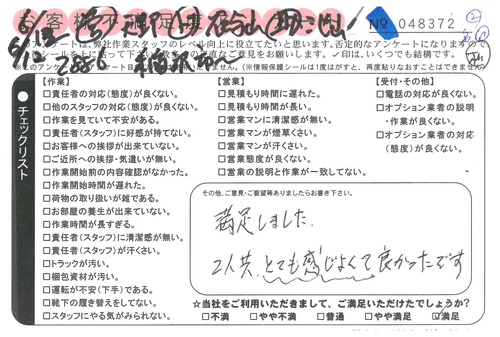 お客様不満足度
№ 048372
※このアンケートは、弊社作業スタッフのレベル向上に役立てたいと思います。否定的なアンケートになりますので
✓印は、いくつでも結構です。
チェックリスト
【作業】
□責任者の対応(態度)が良くない。
□他のスタッフの対応(態度)が良くない。
□作業を見ていて不安がある。
□責任者(スタッフ)に好感が持てない。
□お客様への挨拶が出来ていない。
□ご近所への挨拶・気遣いが無い。
□作業開始前の内容確認がなかった。
□作業開始時間が遅れた。
□荷物の取り扱いが雑である。
□お部屋の養生が出来ていない。
□作業時間が長すぎる。
□責任者(スタッフ)に清潔感が無い。
□責任者(スタッフ)が汗くさい。
□トラックが汚い。
□梱包資材が汚い。
□運転が不安(下手)である。
□靴下の履き替えをしてない。
□スタッフにやる気がみられない。
【営業】
□見積もり時間に遅れた。
□見積もり時間が長い。
□営業マンに清潔感が無い。
□営業マンが煙草くさい。
□営業マンが汗くさい。
□営業態度が良くない。
□営業の説明と作業が一致してない。
【受付・その他】
□電話の対応が良くない。
□オプション業者の説明
・作業が良くない。
□オプション業者の対応
(態度)が良くない。
その他、ご意見・ご要望等ありましたらお書き下さい。
満足しました。
2人共、とても感じよくて良かったです
☆当社をご利用いただきまして、ご満足いただけたでしょうか?
□不満 □やや不満 □普通 □やや満足 ☑満足